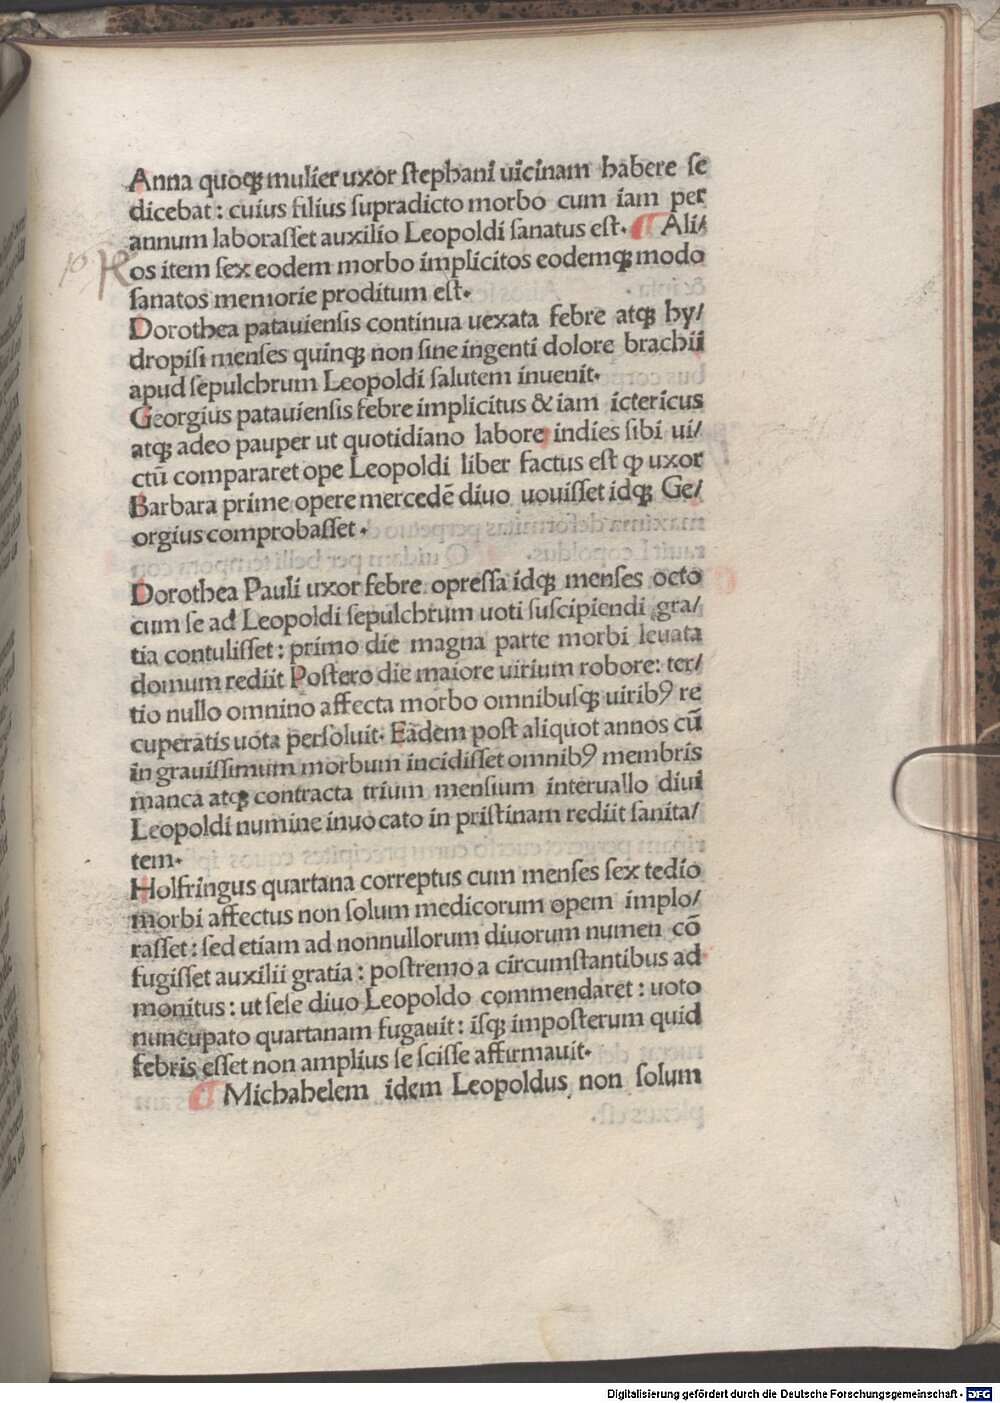 Anna quoqꝫ mulier uxor ſtephani uicinam habere ſe
dicebat : cuius filius ſupradicto morbo cum iam per
annum laboraſſet auxilio Leopoldi ſanatus eſt. ¶ Ali/
os item ſex eodem morbo implicitos eodemqꝫ modo
ſanatos memorie proditum eſt.
Dorothea patauienſis continua uexata febre atqꝫ hy/
dropiſi menſes quinqꝫ non ſine ingenti dolore brachii
apud ſepulchrum Leopoldi ſalutem inuenit.
Georgius patauienſis febre implicitus & iam ictericus
atqꝫ adeo pauper ut quotidiano labore indies ſibi ui/
ctū compararet ope Leopoldi liber factus eſt ꝙ uxor
Barbara prime opere mercedē diuo uouiſſet idqꝫ Ge/
orgius comprobaſſet .
Dorothea Pauli uxor febre opreſſa idqꝫ menſes octo
cum ſe ad Leopoldi ſepulchrum uoti ſuſcipiendi gra/
tia contuliſſet : primo die magna parte morbi leuata
domum rediit Poſtero die maiore uirium robore: ter/
tio nullo omnino affecta morbo omnibuſqꝫ uiribꝰ re
cuperatis uota perſoluit. Eadem poſt aliquot annos cū
in grauiſſimum morbum incidiſſet omnibꝰ membris
manca atqꝫ contracta trium menſium interuallo diui
Leopoldi numine inuocato in priſtinam rediit ſanita/
tem.
Holfringus quartana correptus cum menſes ſex tedio
morbi affectus non ſolum medicorum opem implo/
raſſet : ſed etiam ad nonnullorum diuorum numen cō
fugiſſet auxilii gratia : poſtremo a circumſtantibus ad
monitus : ut ſeſe diuo Leopoldo commendaret : uoto
nuncupato quartanam fugauit : iſqꝫ impoſterum quid
febris eſſet non amplius ſe ſciſſe affirmauit.
¶ Michahelem idem Leopoldus non ſolum
Digitalisierung gefördert durch die Deutsche Forschungsgemeinschaft - DFG